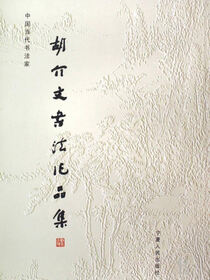 中国当代书法家
胡介文书法作品集
宁夏人民出版社